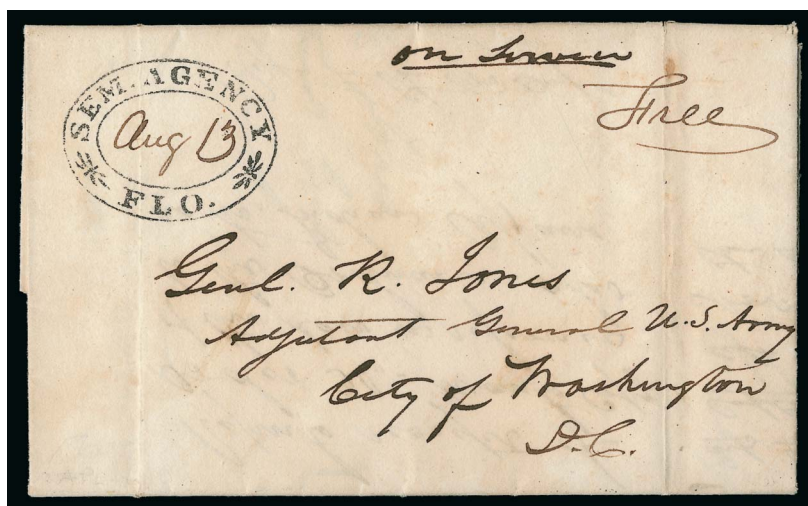 on Service
Free
SEM. AGENCY
Aug 13
FLO.
Genl. R. Jones
Adjutant General U.S. Army
City of Washington
D.C.